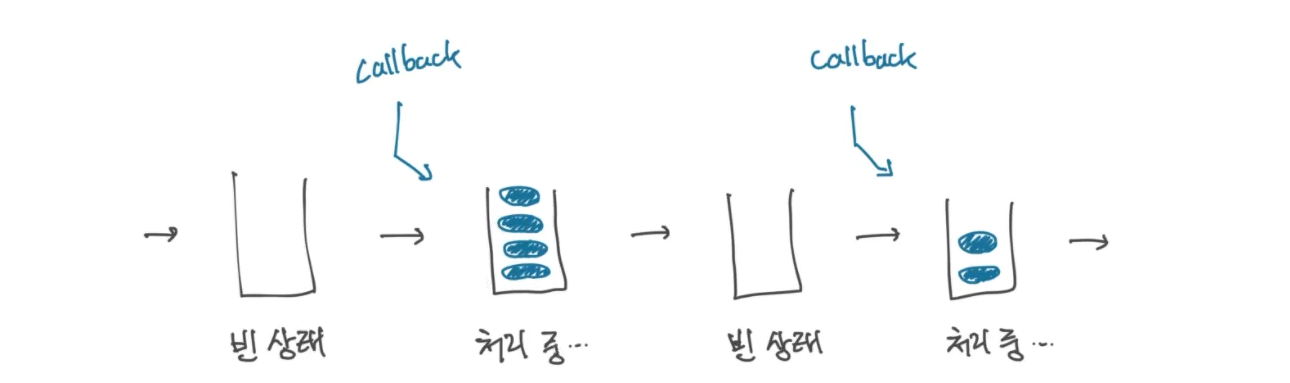 callback
callback
빈 상태
처리 중...
빈 상태
처리 중...